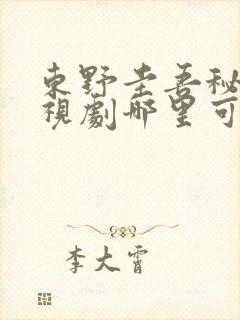 東野圭吾秘
視劇哪里可
李大霄